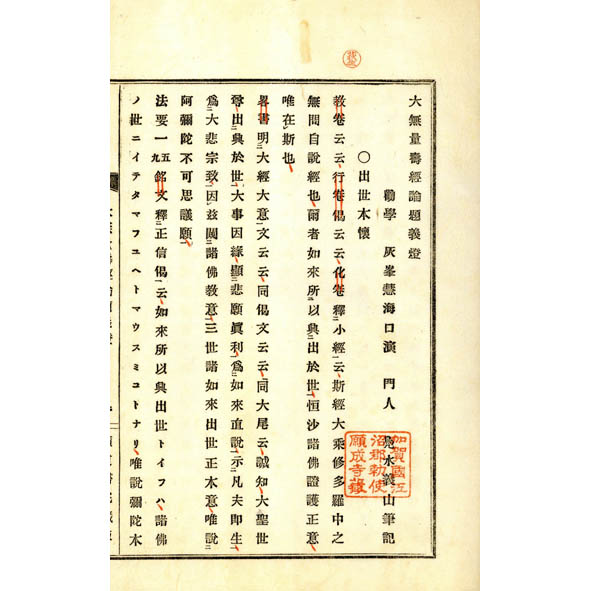 大無量壽經論題義燈
勸學 灰峯慧海口演 門人 水義山筆記
〇出世本懷
敎卷云云、行卷偈云云、化卷釋小經ニ云、斯經大乘修多羅中之
無問自說經也、爾者如來所以興出於世、恒沙諸佛證護正意、
唯在斯也、
畧書明大經大意文云云、同偈文云云、同大尾云、誠知、大聖世
尊出興於世大事因緣、顯悲願眞利、爲如來直說、示凡夫卽生、
爲大悲宗致、因玆闚諸佛敎意、三世諸如來出世正本意、唯說
阿彌陀不可思議願、
法要一五九銘文釋正信偈云、如來所以興出世トイフハ諸佛
ノ世ニイテタマフユヘトマウスミコトナリ、唯說彌陀本
加賀國江
沼郡勅使
願成寺藏